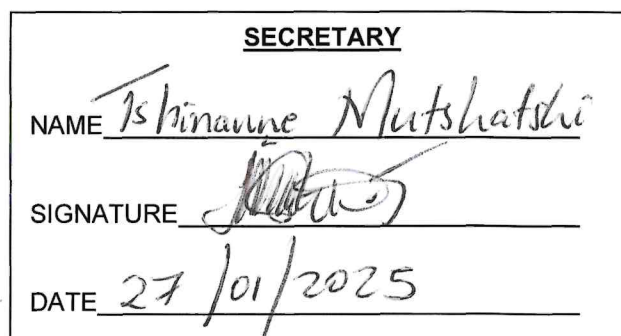 SECRETARY
NAME Tshinanne Mutshatshi
SIGNATURE
DATE 27/01/2025